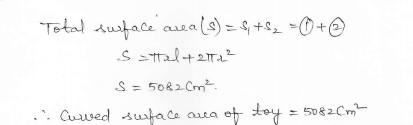 Total surface area (S) = S₁ + S₂ = ① + ②
S = πrl + 2πr²
S = 5082 Cm².
∴ Curved surface area of toy = 5082 Cm²